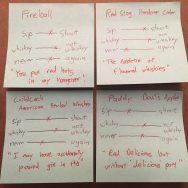 Fireball
Sip shoot
whiskey not whiskey
never again
"You put red hots in my Hangover!"
Red Stag Hardcore Cider
Sip shoot
whiskey not whiskey
never again
"The Addiction of flavored whiskies"
American Whiskey
Sip shoot
whiskey not whiskey
never again
"I may have accidentally poured gin in this"
Paddy Devil's Apple
Sip shoot
whiskey not whiskey
never again
"Red Delicious but without delicious part"